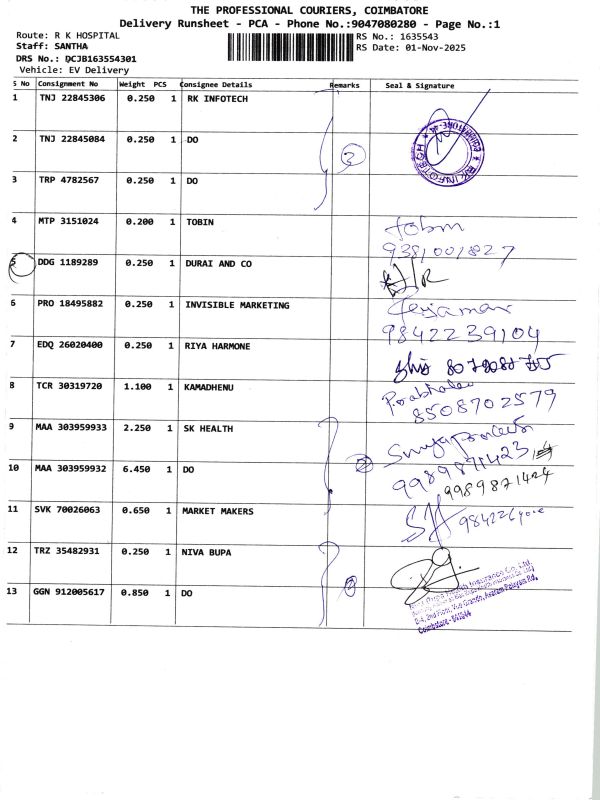 THE PROFESSIONAL COURIERS, COIMBATORE
Delivery Runsheet - PCA - Phone No.:9047080280 - Page No.:1
Route: R K HOSPITAL
Staff: SANTHA
DRS No.: DCJB163554301
Vehicle: EV Delivery
RS No.: 1635543
RS Date: 01-Nov-2025
S No Consignment No Weight PCS Consignee Details Remarks Seal & Signature
1 TNJ 22845306 0.250 1 RK INFOTECH
RK INFOTECH
2 TNJ 22845084 0.250 1 DO
3
3 TRP 4782567 0.250 1 DO
4 MTP 3151024 0.200 1 TOBIN
Tobin
9381001827
5 DDG 1189289 0.250 1 DURAI AND CO
6 PRO 18495882 0.250 1 INVISIBLE MARKETING
9842239104
7 EDQ 26020400 0.250 1 RIYA HARMONE
8 TCR 30319720 1.100 1 KAMADHENU
8508702579
9 MAA 303959933 2.250 1 SK HEALTH
10 MAA 303959932 6.450 1 DO
2
9989871424
11 SVK 70026063 0.650 1 MARKET MAKERS
12 TRZ 35482931 0.250 1 NIVA BUPA
13 GGN 912005617 0.850 1 DO
2
Health Insurance Co. Ltd.
Coimbatore - 641044